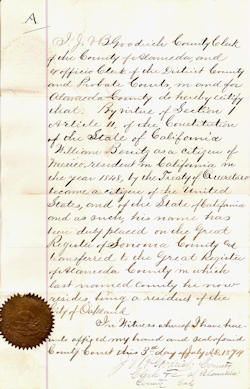 A
I J. V B Goodrich County Clerk
of the County of Alameda, and
ex officio Clerk of the District County
and Probate Courts, in and for
Alameda County do hereby certify
that: By virtue of Section 1
Article 2 of the Constitution
of the State of California
William Benitz as a citizen of
Mexico, resident in California in
the year 1848, by the Treaty of Queretaro
became a citizen of the United
States, and of the State of California
and as such, his name has
been duly placed on the Great
Register of Sonoma County Cal
transferred to the Great Register
of Alameda County in which
last named County he now
resides, being a resident of the
City of Oakland
In Witness whereof I have here
unto affixed my hand and seal of said
County Court this 3d day of AD. 1874
County
Clerk of Alameda
County Cal